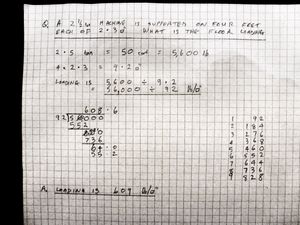 Q. A 2½ ton MACHINE IS SUPPORTED ON FOUR FEET
EACH OF 2·3□" WHAT IS THE FLOOR LOADING
2·5 ton = 50 cwt = 5,600 lb
4 × 2·3 = 9·2□"
LOADING IS 5,600 ÷ 9·2
= 56,000 ÷ 92 lb/□"
608·6
92)56000
552
736
64·0
55·2
1 92
2 184
3 276
4 368
5 460
6 552
7 644
8 736
9 828
A. LOADING IS 609 lb/□"